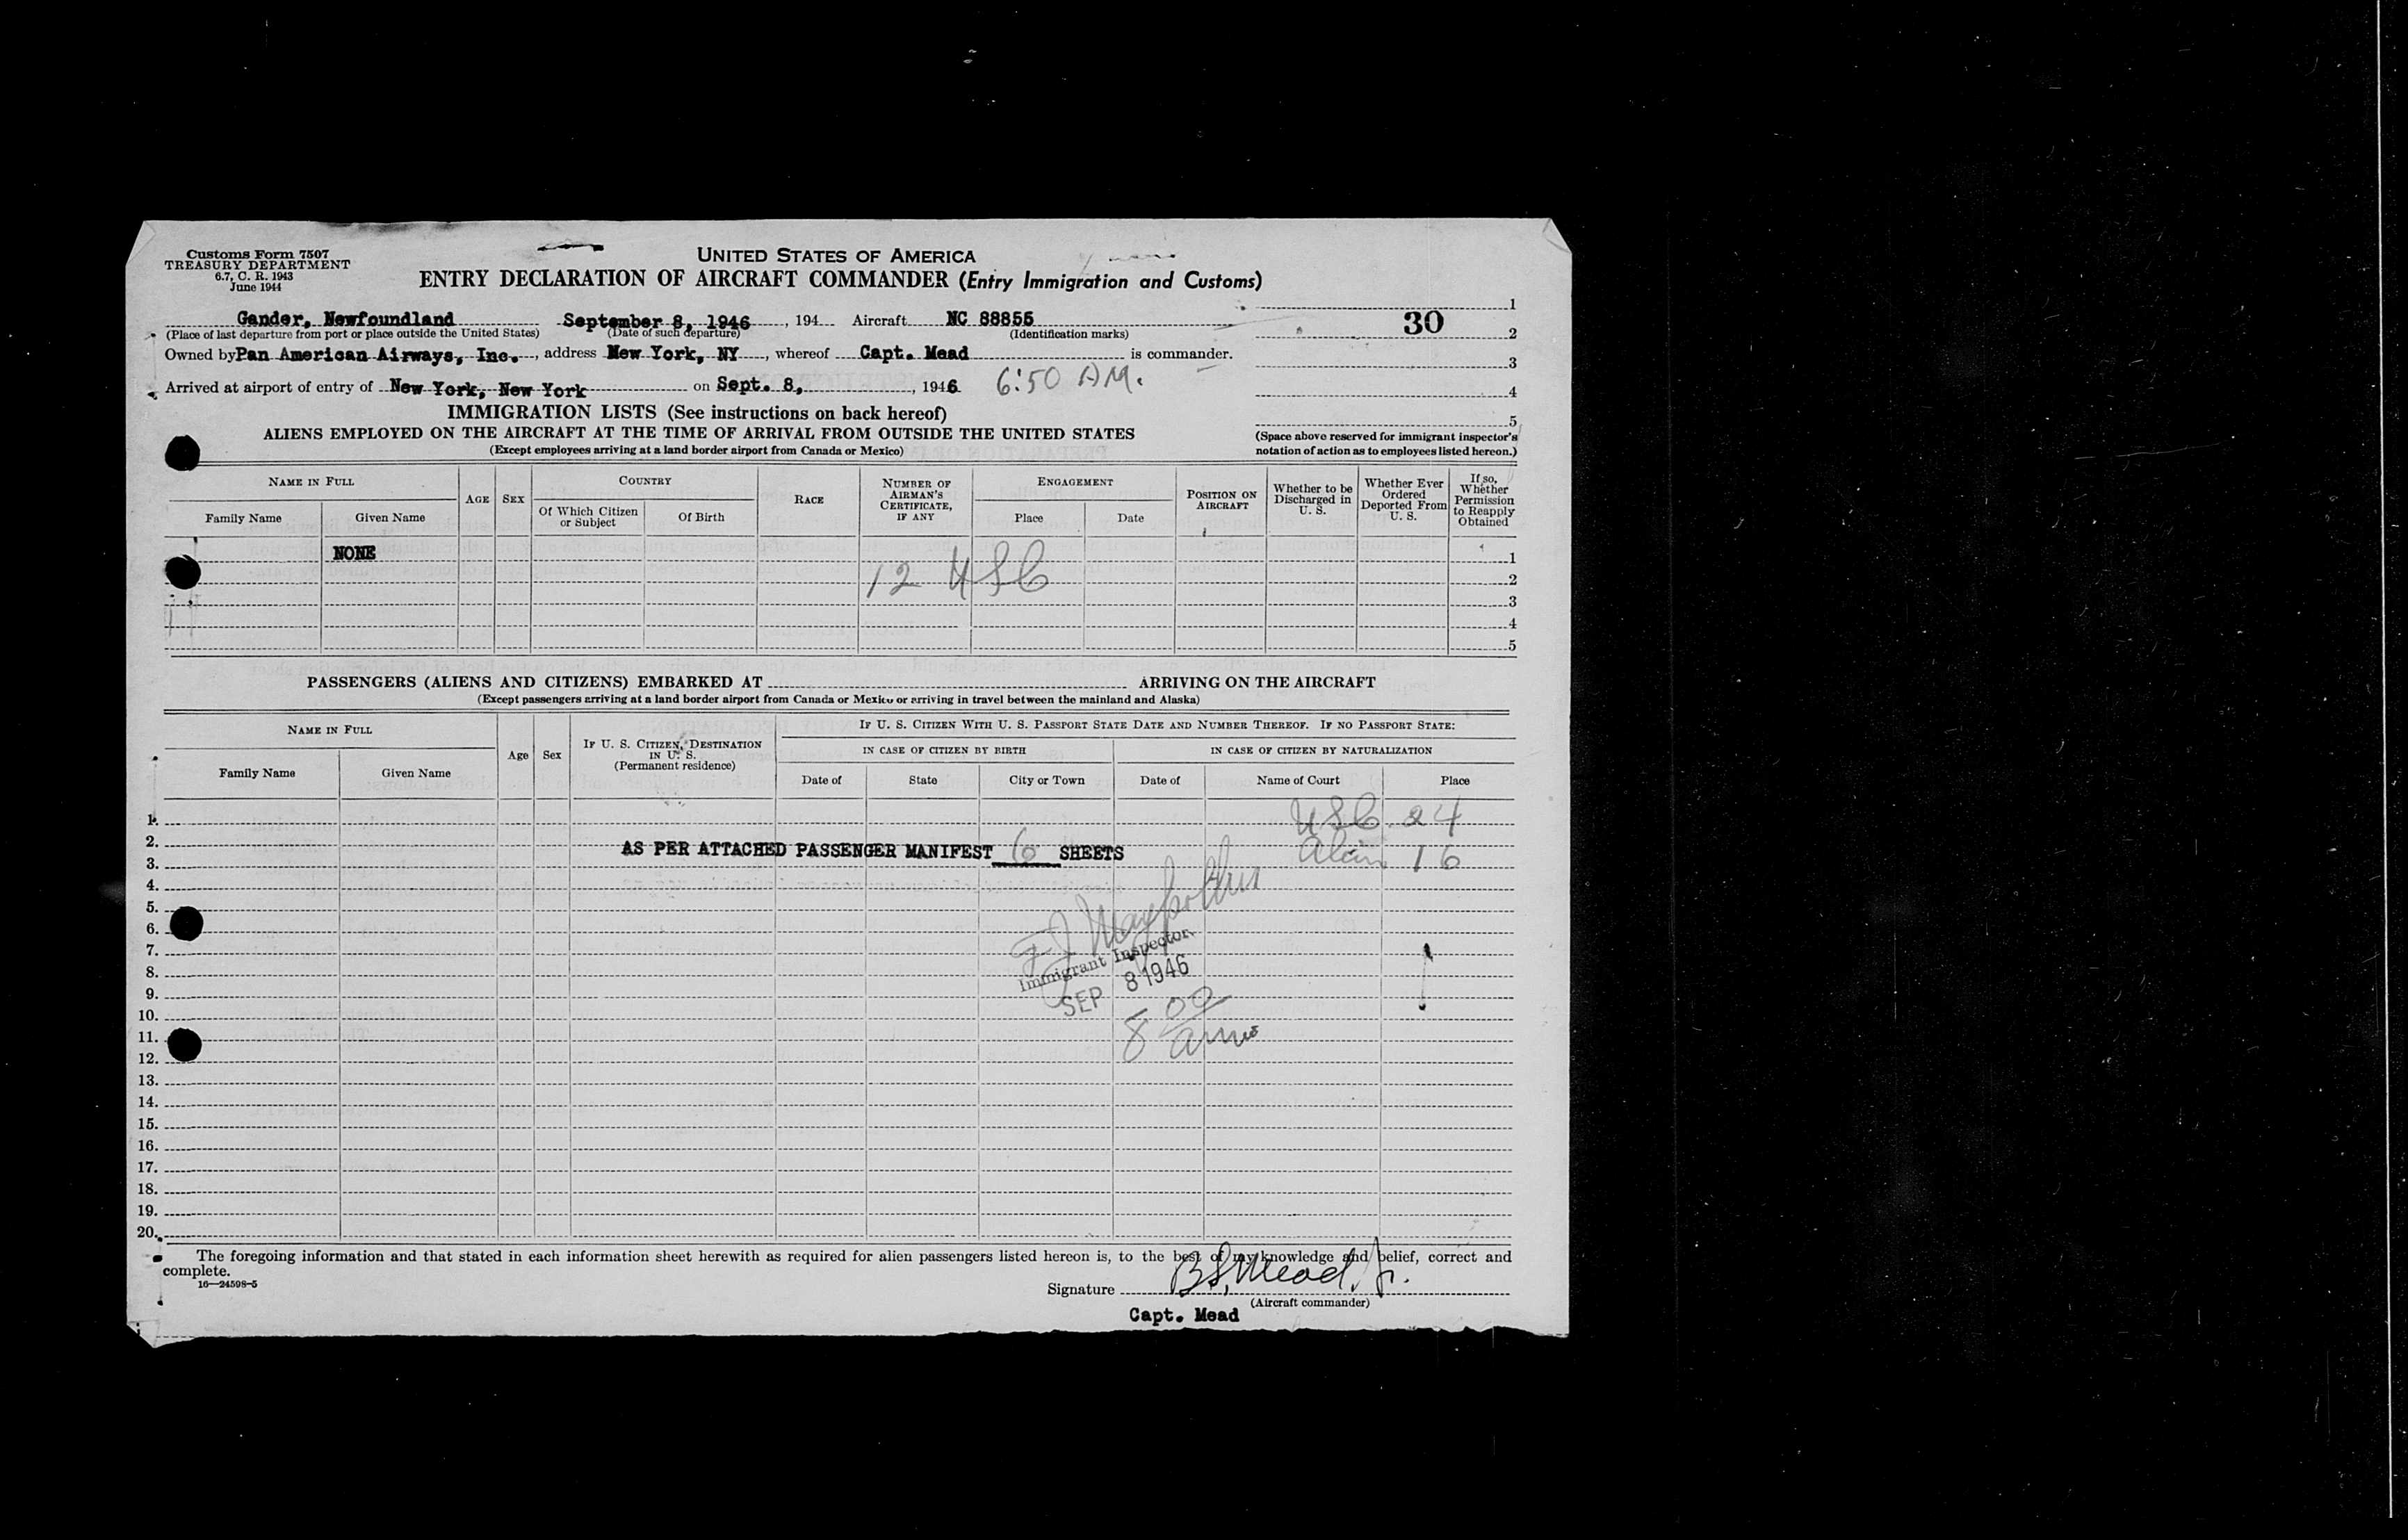 Customs Form 7507
TREASURY DEPARTMENT
6.7, C. R. 1943
June 1944
UNITED STATES OF AMERICA
ENTRY DECLARATION OF AIRCRAFT COMMANDER (Entry Immigration and Customs)
Gander, Newfoundland September 8, 1946, 194 Aircraft NC 88855
(Place of last departure from port or place outside the United States) (Date of such departure) (Identification marks)
Owned by Pan American Airways, Inc., address New York, NY, whereof Capt. Mead is commander.
Arrived at airport of entry of New York, New York on Sept. 8, 1946 6:50 AM.
30
1
2
3
4
5
(Space above reserved for immigrant inspector's notation of action as to employees listed hereon.)
IMMIGRATION LISTS (See instructions on back hereof)
ALIENS EMPLOYED ON THE AIRCRAFT AT THE TIME OF ARRIVAL FROM OUTSIDE THE UNITED STATES
(Except employees arriving at a land border airport from Canada or Mexico)
NAME IN FULL
Family Name Given Name
AGE SEX
COUNTRY
Of Which Citizen or Subject Of Birth
RACE
NUMBER OF AIRMAN'S CERTIFICATE, IF ANY
ENGAGEMENT
Place Date
POSITION ON AIRCRAFT
Whether to be Discharged in U. S.
Whether Ever Ordered Deported From U. S.
If so, Whether Permission to Reapply Obtained
NONE 1
12 USC 2
3
4
5
PASSENGERS (ALIENS AND CITIZENS) EMBARKED AT ARRIVING ON THE AIRCRAFT
(Except passengers arriving at a land border airport from Canada or Mexico or arriving in travel between the mainland and Alaska)
NAME IN FULL
Family Name Given Name
Age Sex
IF U. S. CITIZEN, DESTINATION IN U. S.
(Permanent residence)
IF U. S. CITIZEN WITH U. S. PASSPORT STATE DATE AND NUMBER THEREOF. IF NO PASSPORT STATE:
IN CASE OF CITIZEN BY BIRTH IN CASE OF CITIZEN BY NATURALIZATION
Date of State City or Town Date of Name of Court Place
1. USC 24
2.
AS PER ATTACHED PASSENGER MANIFEST 6 SHEETS Alien 16
3.
4.
5.
6.
7.
Immigrant Inspector
8.
SEP 8 1946
9.
10.
8 00 am
11.
12.
13.
14.
15.
16.
17.
18.
19.
20.
The foregoing information and that stated in each information sheet herewith as required for alien passengers listed hereon is, to the best of my knowledge and belief, correct and
complete.
16—24598-5
Signature B S Mead, Jr.
(Aircraft commander)
Capt. Mead